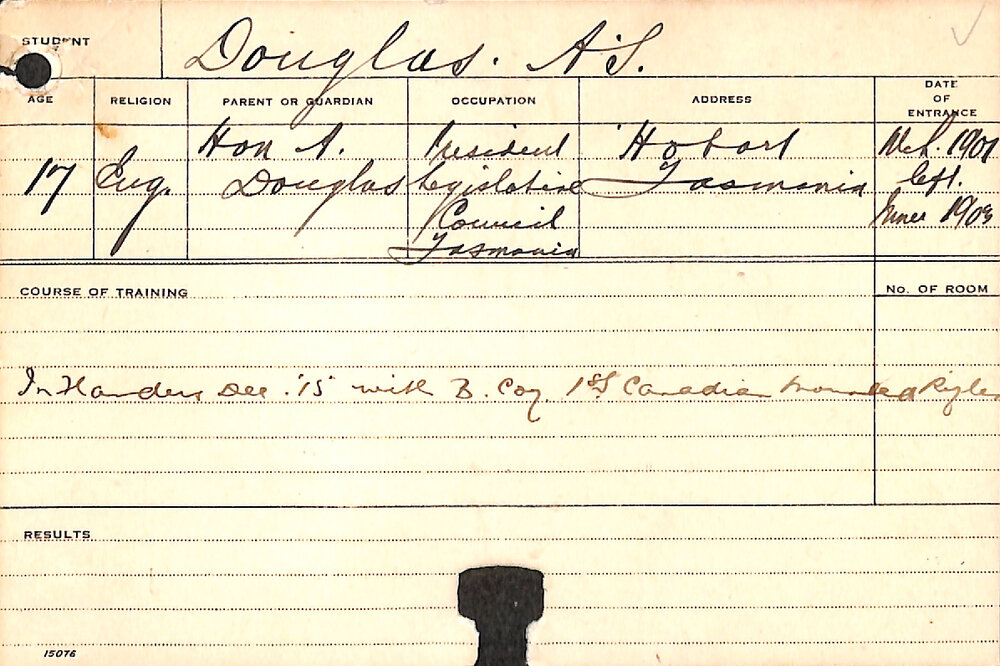 STUDENT
Douglas. A. S.
AGE
RELIGION
PARENT OR GUARDIAN
OCCUPATION
ADDRESS
DATE
OF
ENTRANCE
17
Eng.
Hon A.
Douglas
President
Legislative
Council
Tasmania
Hobart
Tasmania
Mch. 1901
left.
June 1903
COURSE OF TRAINING
No. OF ROOM
In Flanders Dec. '15 with B. Coy 1st Canadian Mounted Rifles
RESULTS
15076